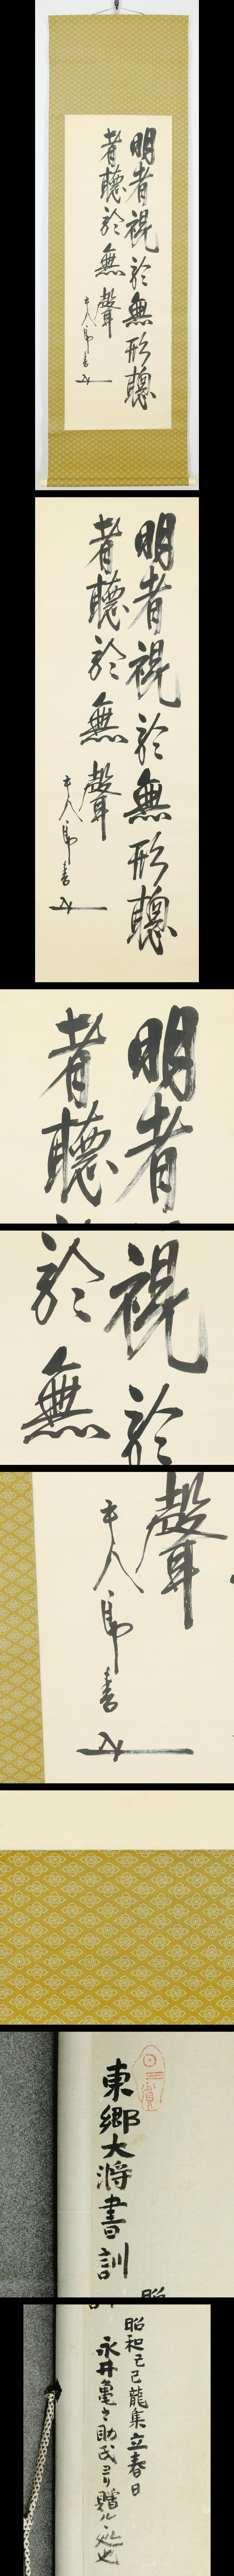 明者視於無形聰
者聽於無聲
平八郎書
明者視於無形聰
者聽於無聲
平八郎書
明者
者聽
視於
於無
聲
平八郎書
東郷大将書訓
昭和己巳龍集立春日
永井亀之助氏ヨリ贈ル処也